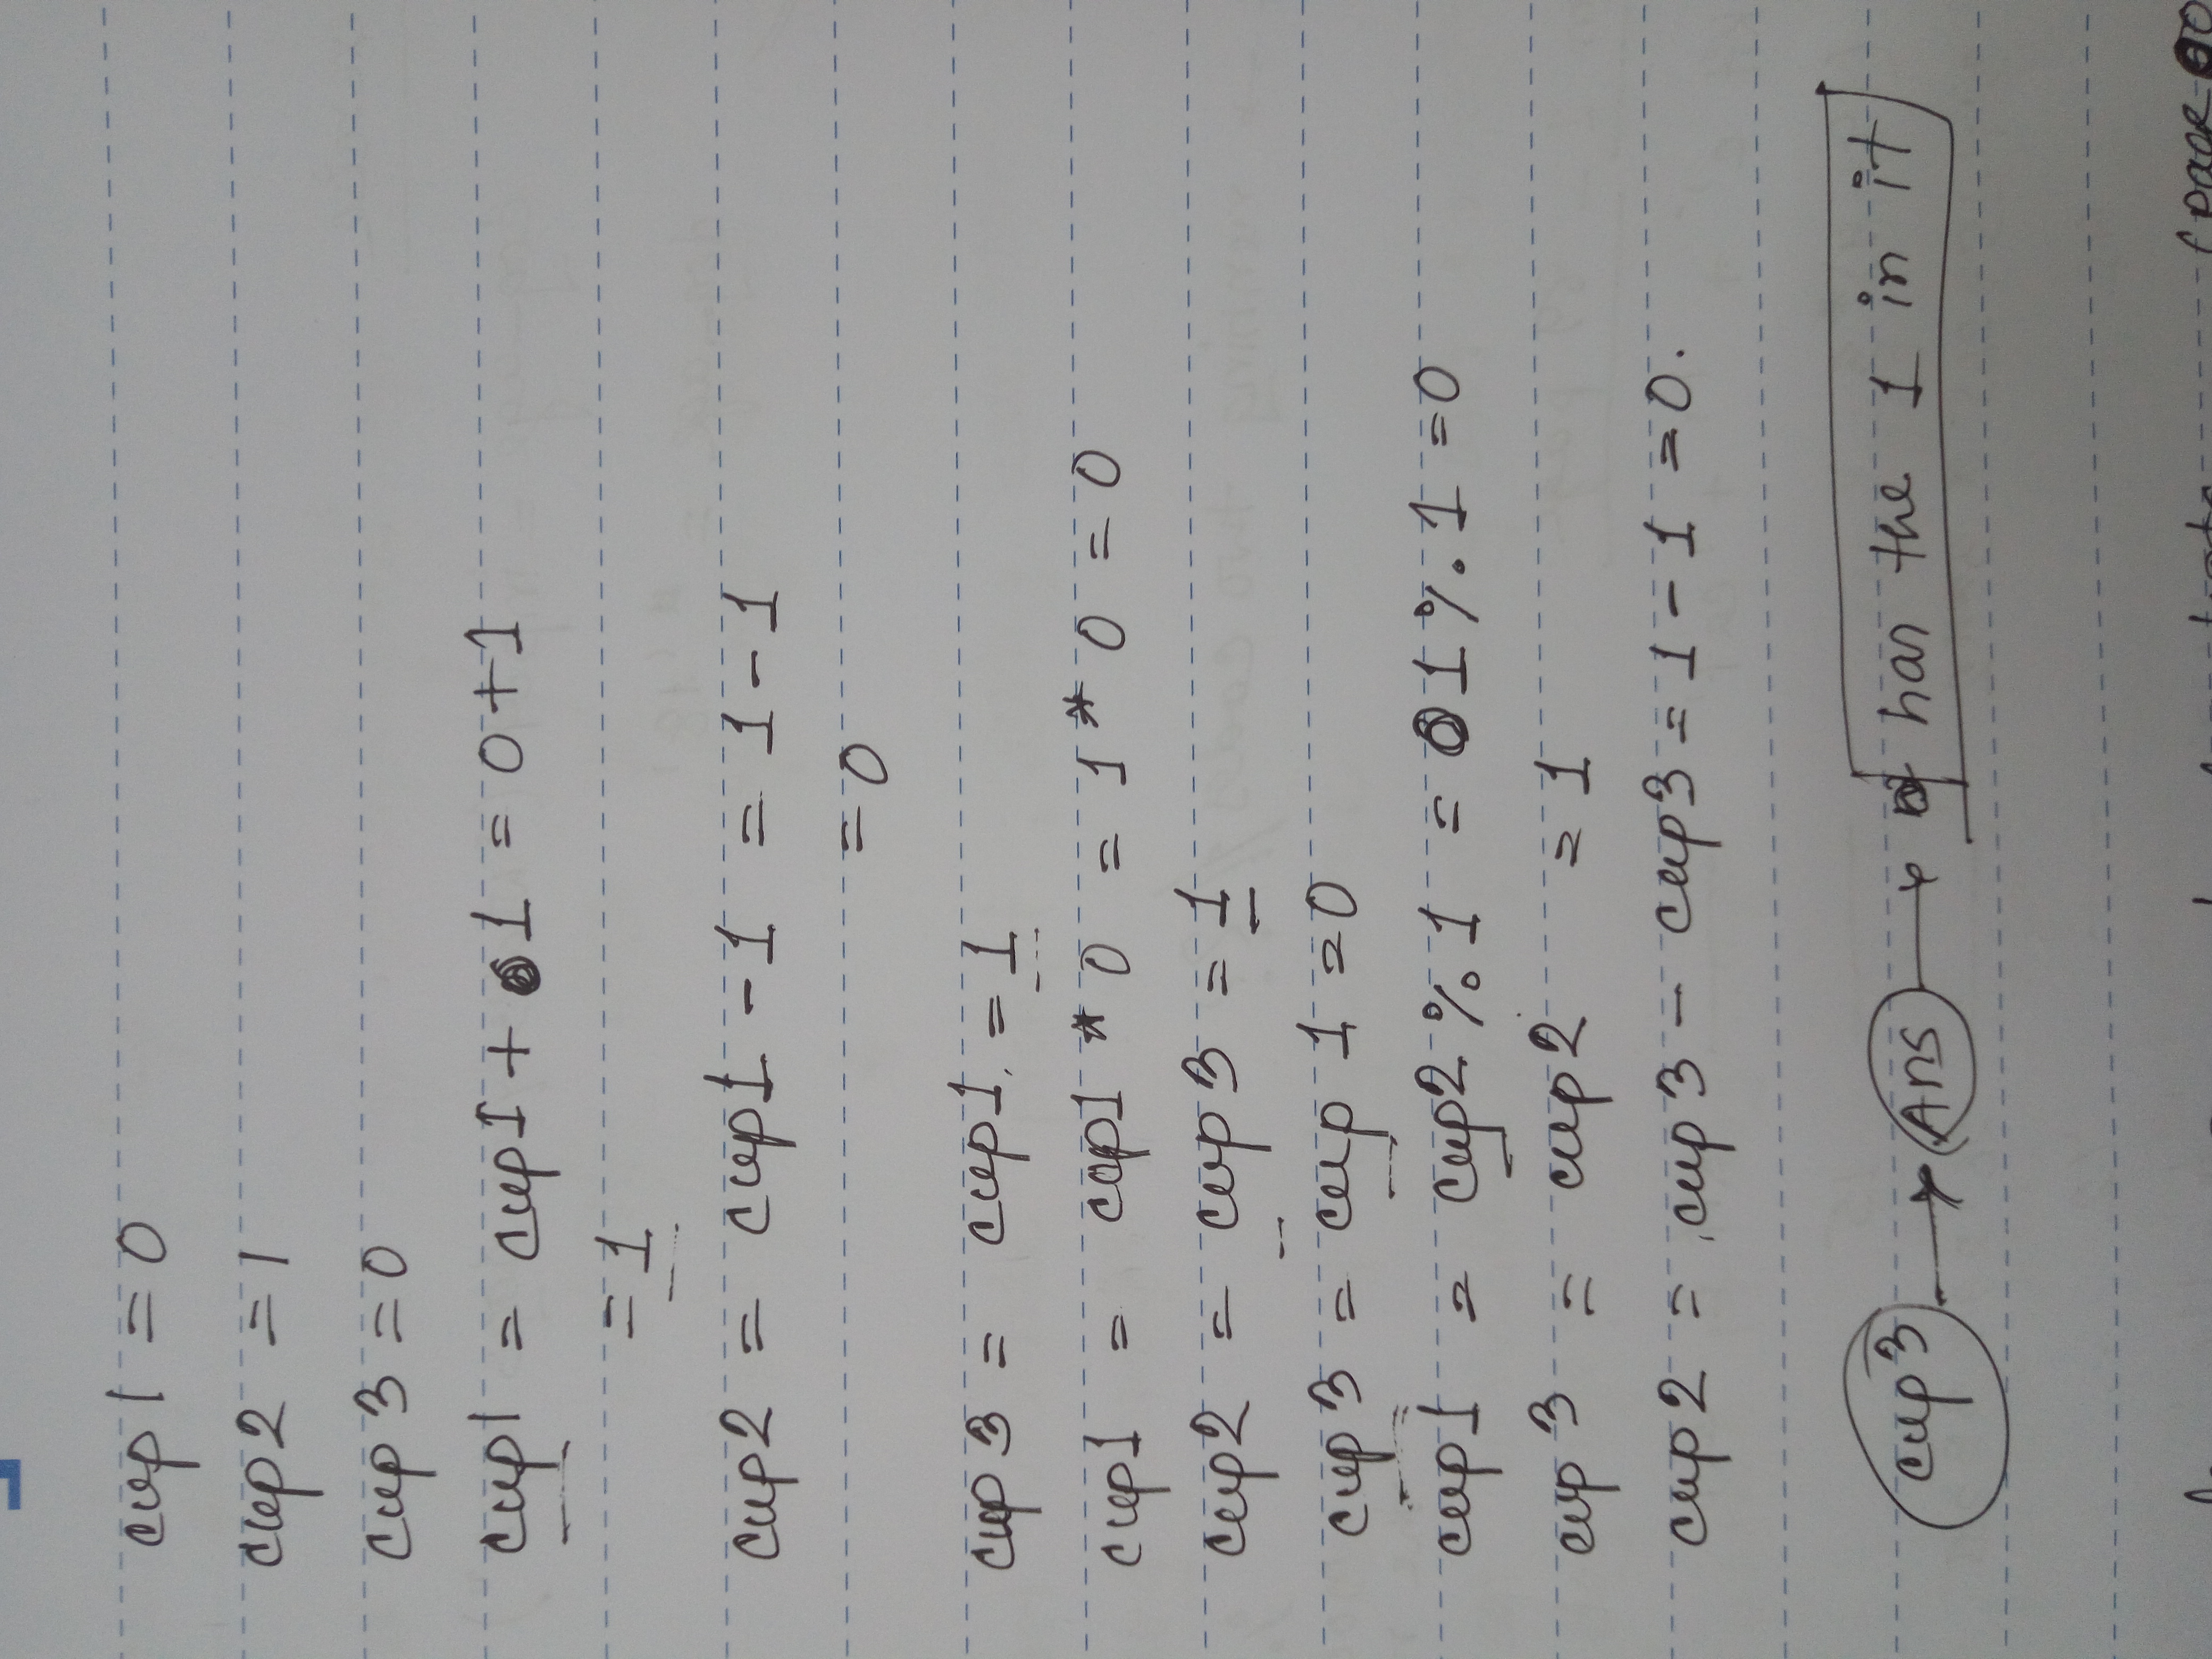 cup1 = 0
cup2 = 1
cup3 = 0
cup1 = cup1 + 1 = 0+1
= 1
cup2 = cup1 - 1 = 1 - 1
= 0
cup3 = cup1. = 1
cup1 = cup1 * 0 = 1 * 0 = 0
cup2 = cup3 = 1
cup3 = cup 1 = 0
cup1 = cup2 % 1 = 1 % 1 = 0
cup3 = cup2 = 1
cup2 = cup3 - cup3 = 1 - 1 = 0.
cup3 → Ans → has the 1 in it